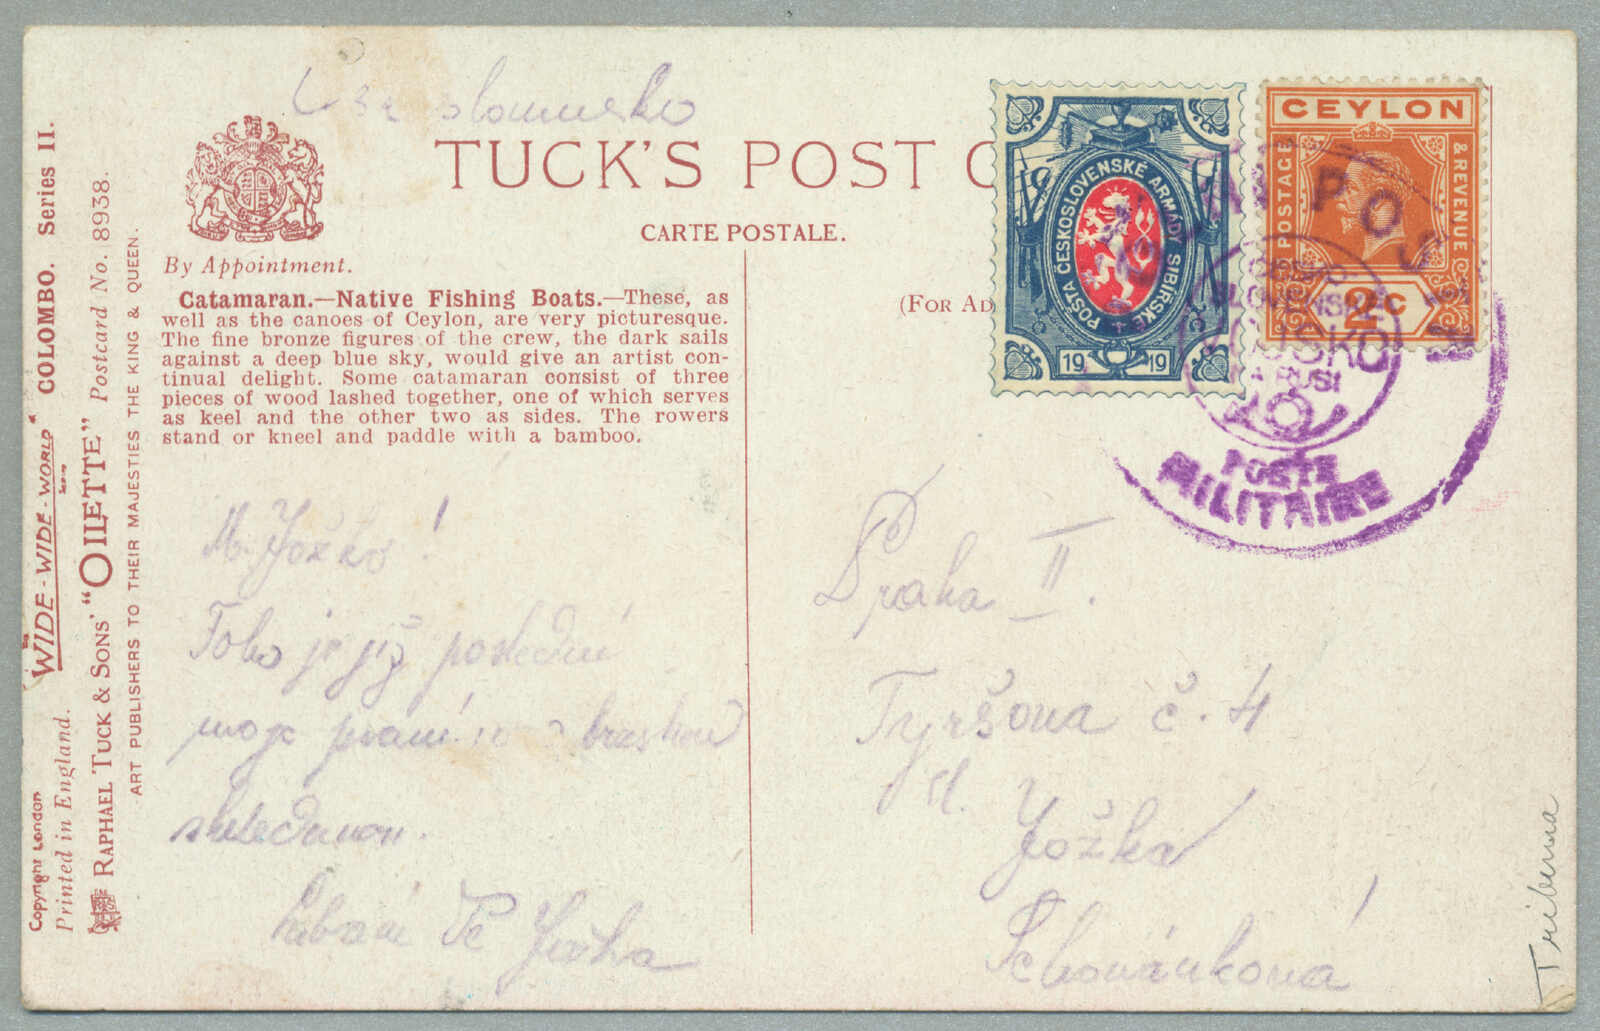 TUCK'S POST C
CARTE POSTALE.
By Appointment.
(FOR AD
Catamaran.—Native Fishing Boats.—These, as
well as the canoes of Ceylon, are very picturesque.
The fine bronze figures of the crew, the dark sails
against a deep blue sky, would give an artist con-
tinual delight. Some catamaran consist of three
pieces of wood lashed together, one of which serves
as keel and the other two as sides. The rowers
stand or kneel and paddle with a bamboo.
"WIDE-WIDE-WORLD" COLOMBO. Series II.
RAPHAEL TUCK & SONS' "OILETTE" Postcard No. 8938.
ART PUBLISHERS TO THEIR MAJESTIES THE KING & QUEEN.
Copyright London
Printed in England.
POŠTA ČESKOSLOVENSKÉ ARMÁDY SIBIŘSKÉ
1919
CEYLON
POSTAGE
& REVENUE
2 C
POS
VOJSKO
NA RUSI
POSTE
MILITAIRE
M. Jožko!
je již poslední
moje
Praha II.
Tyršova č. 4
sl.
Jožka
Tribuna